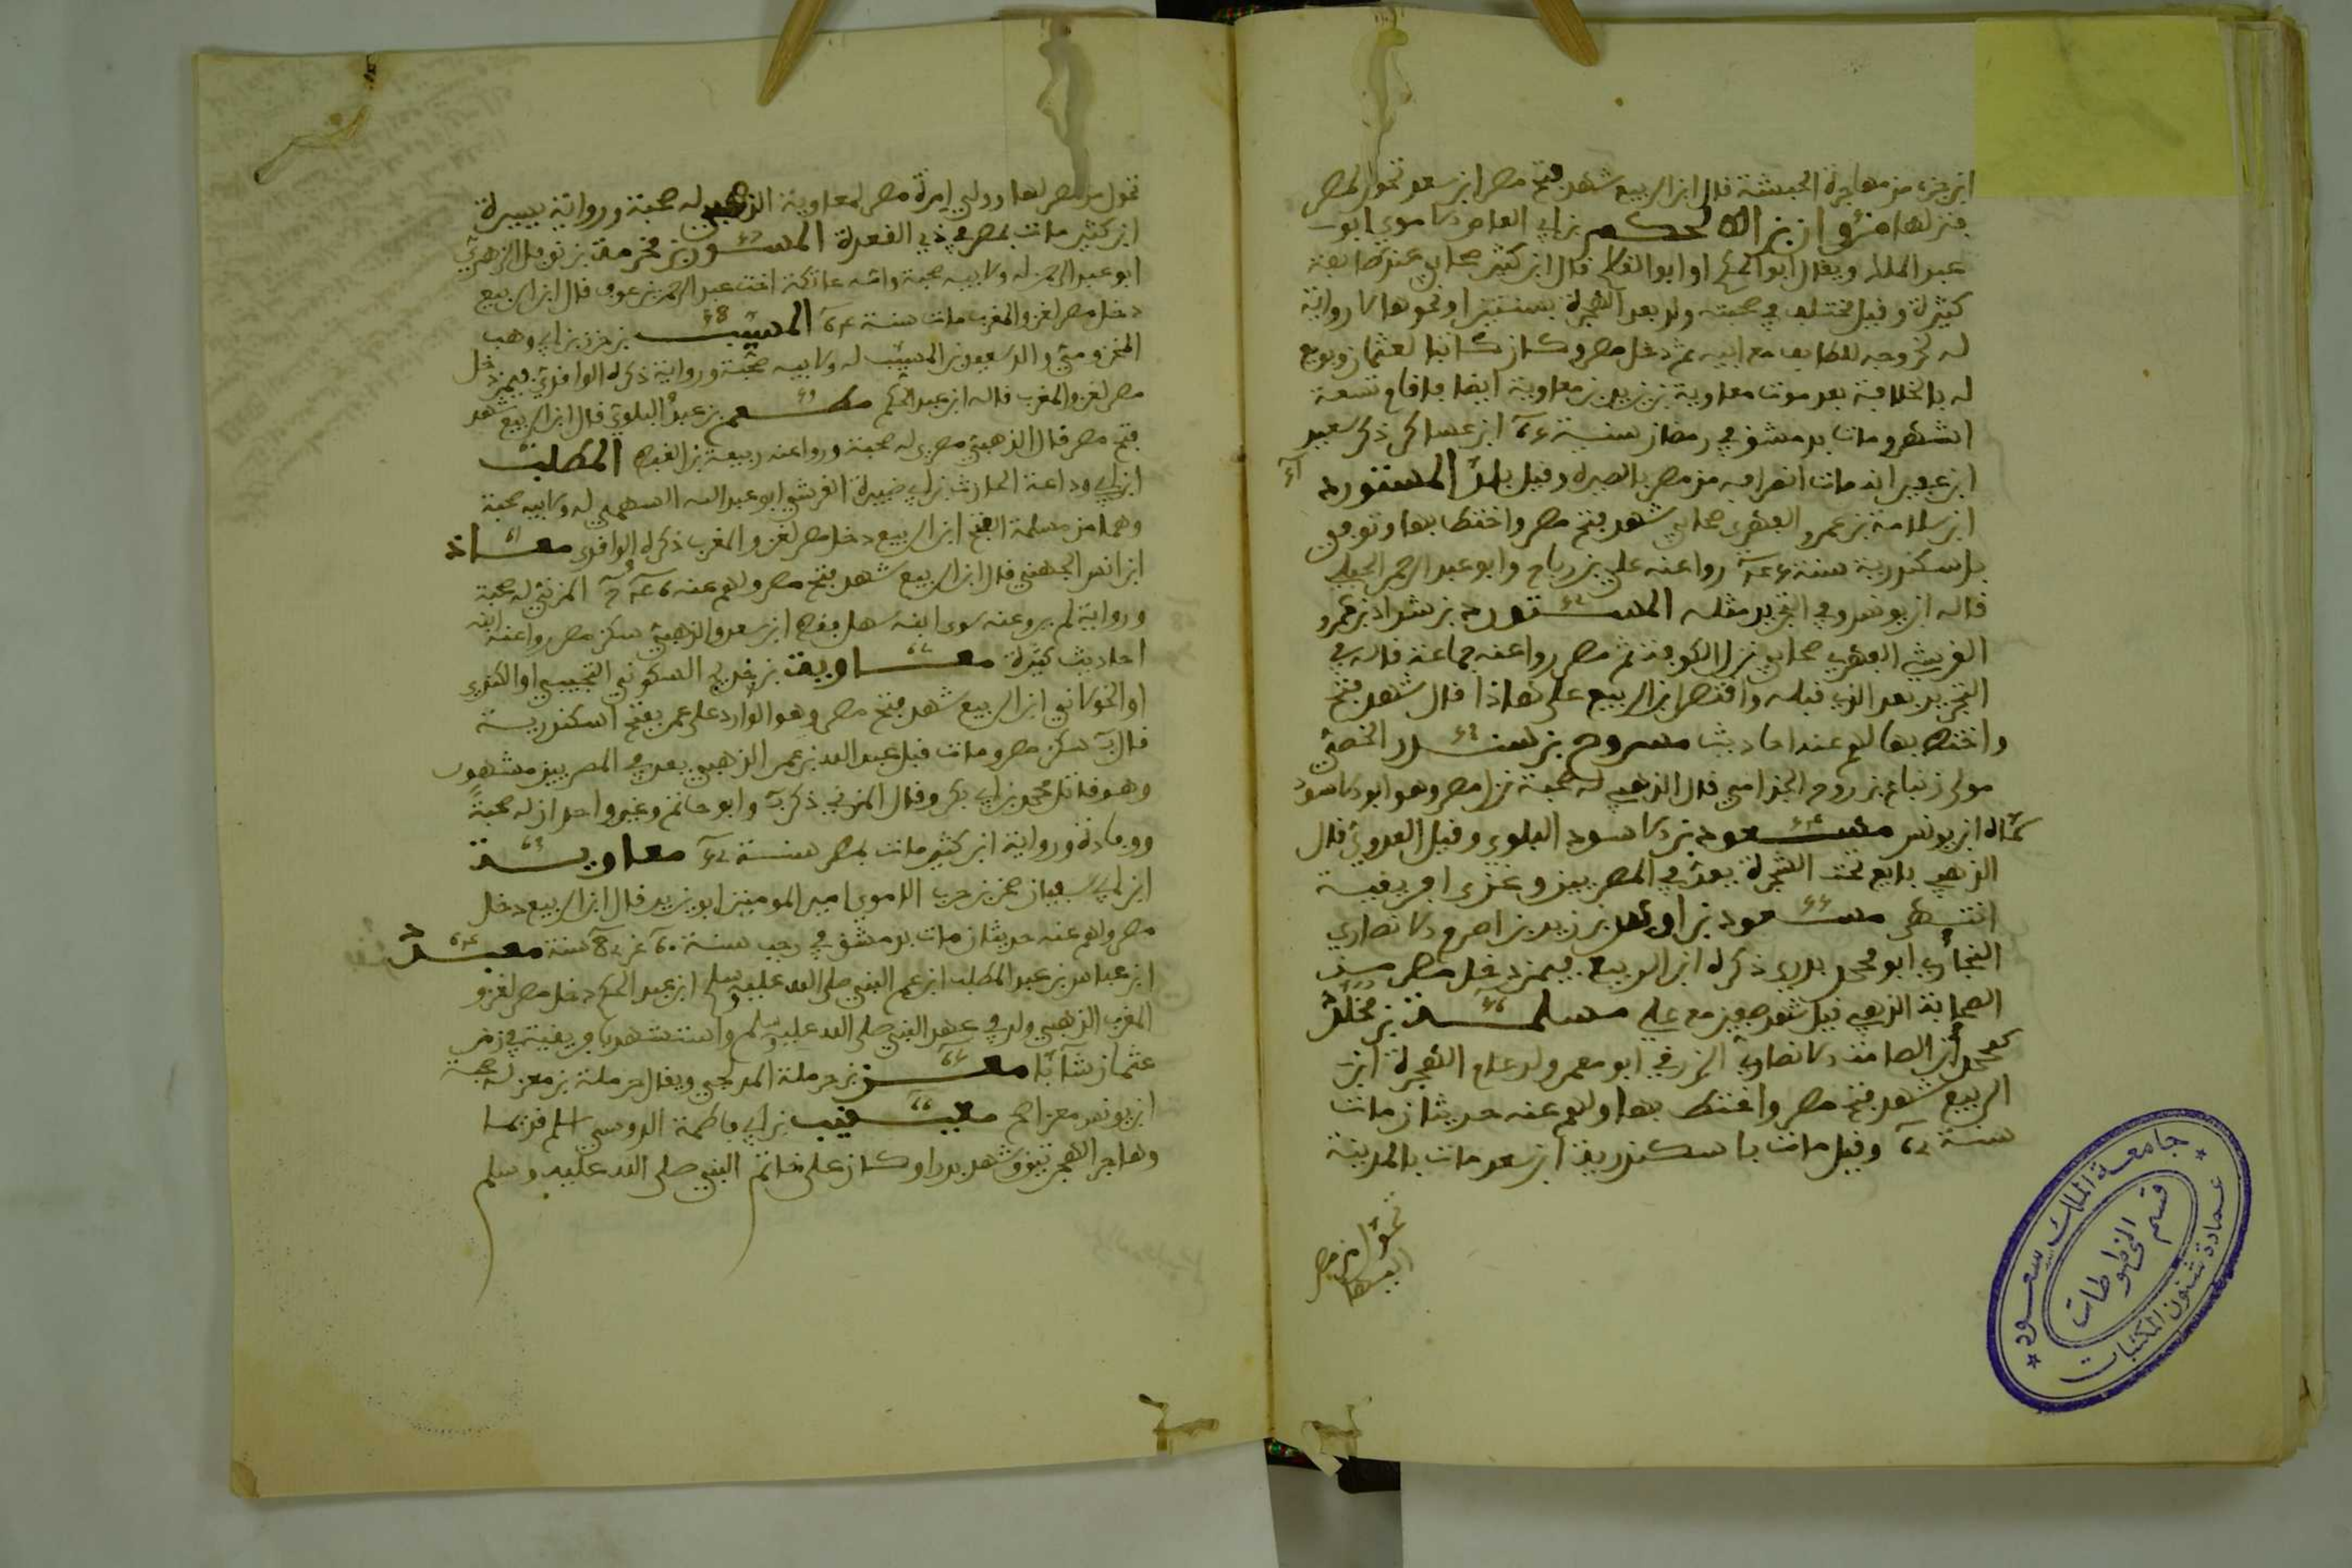 ابن جزء من مهاجرة الحبشة قال ابن الربيع شهد فتح مصر ابن سعد تحول لمصر
فنزلها مروان بن الحكم بن ابي العاص الاموي ابو
عبد الملك ويقال ابو الحكم او ابو القاسم قال ابن كثير صحابي عند طايفة
كثيرة وقيل مختلف في صحبته ولد بعد الهجرة بسنتين او نحوها لا رواية
له لخروجه للطايف مع ابيه ثم دخل مصر وكان كاتبا لعثمان وبويع
له بالخلافة بعد موت معاوية بن يزيد بن معاوية ايضا فاقام تسعة
اشهر ومات بدمشق في رمضان سنة ابن عساكر ذكر سعيد
ابن عفير انه مات انصرافه من مصر بالصبرة وقيل بلد المستورد
ابن سلامة بن عمرو الفهري صحابي شهد فتح مصر واختط بها وتوفي
باسكندرية سنة روا عنه علي بن رباح وابو عبد الرحمن الحبلي
قاله ابن يونس وفي التجريد مثله المستورد بن شداد بن عمرو
القرشي الفهري صحابي نزل الكوفة ثم مصر روا عنه جماعة قاله في
التجريد بعد الذي قبله واقتصر ابن الربيع على هاذا قال شهد فتح
واختط بها لهم عنه احاديث مسروح بن سندر الخصي
مولى زنباع بن روح الجذامي قال الذهبي له صحبة نزل مصر وهو ابو الاسود
كناه ابن يونس مسعود بن الاسود البلوي وقيل العدوي قال
الذهبي بايع تحت الشجرة يعد في المصريين وغزى افريقية
انتهى مسعود بن اوس بن زيد بن اصرم الانصاري
النجاري ابو محمد بدري ذكره ابن الربيع فيمن دخل مصر من
الصحابة الذهبي قيل شهد صفين مع علي مسلمة بن مخلد
ابن الصامت الانصاري الزرقي ابو معمر ولد عام الهجرة ابن
الربيع شهد فتح مصر واختط بها ولهم عنه حديثان مات
سنة وقيل مات باسكندرية ابن سعد مات بالمدينة
تحول من مصر
اليها
تحول من مصر لها وولي امرة مصر لمعاوية الذهبي له صحبة ورواية يسيرة
ابن كثير مات بمصر في ذي القعدة المسور بن مخرمة بن نوفل الزهري
ابو عبد الرحمن له ولابيه صحبة وامه عاتكة اخت عبد الرحمن بن عوف قال ابن الربيع
دخل مصر لغزو المغرب مات سنة المسيب بن حزن بن ابي وهب
المخزومي والد سعيد بن المسيب له ولابيه صحبة ورواية ذكره الواقدي فيمن دخل
مصر لغزو المغرب قاله ابن عبد الحكم مطعم بن عبيد البلوي قال ابن الربيع شهد
فتح مصر قال الذهبي مصري له صحبة وروا عنه ربيعة بن لقيط المطلب
ابن ابي وداعة الحارث بن ابي ضبيرة القرشي ابو عبد الله السهمي له ولابيه صحبة
وهما من مسلمة الفتح ابن الربيع دخل مصر لغزو المغرب ذكره الواقدي معاذ
ابن انس الجهني قال ابن الربيع شهد فتح مصر ولهم عنه المزني له صحبة
ورواية لم يرو عنه سوى ابنه سهل فقط ابن سعد والذهبي سكن مصر روا عنه ابنه
احاديث كثيرة معاوية بن خديج السكوني التجيبي او الكندي
او الخولاني ابن الربيع شهد فتح مصر وهو الوارد على عمر بفتح اسكندرية
قال سكن مصر ومات قبل عبد الله بن عمر الذهبي يعد في المصريين مشهور
وهو قاتل محمد بن ابي بكر وقال المزني ذكر وابو حاتم وغير واحد ان له صحبة
ووفادة ورواية ابن كثير مات بمصر سنة معاوية
ابن ابي سفيان صخر بن حرب الاموي امير المومنين ابو يزيد قال ابن الربيع دخل
مصر ولهم عنه حديثان مات بدمشق في رجب سنة ٦٠ عن سنة معبد
ابن عباس بن عبد المطلب ابن عم النبي صلى الله عليه وسلم ابن عبد الحكم دخل مصر لغزو
المغرب الذهبي ولد في عهد النبي صلى الله عليه وسلم واستشهد بافريقية في زمن
عثمان شابا معن بن حرملة المدلجي ويقال حرملة بن معن له صحبة
ابن يونس معن اصح معيقيب بن ابي فاطمة الدوسي اسلم قديما
وهاجر الهجرتين وشهد بدرا وكان على خاتم النبي صلى الله عليه وسلم
جامعة الملك سعود
عمادة شئون المكتبات
قسم المخطوطات